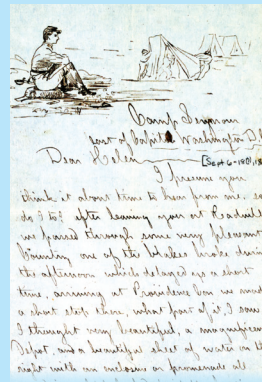 Camp Sprague
east of Capitol Washington D
[Sept 6-1861]
Dear Helen
I presume you
think it about time to hear from one, so
do I too after leaving you at Readville
we passed through some very pleasant
Country one of the brakes broke during
the afternoon which delayed us a short
time, arriving at Providence Con we made
a short stop there, what part of it I saw
I thought very beautiful, a magnificent
Depot, and a beautiful sheet of water on the
right with an enclosure or promenade all